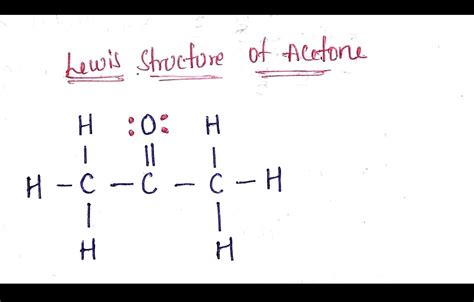 Lewis Structure of Acetone
H :O: H
| || |
H – C – C – C – H
| |
H H